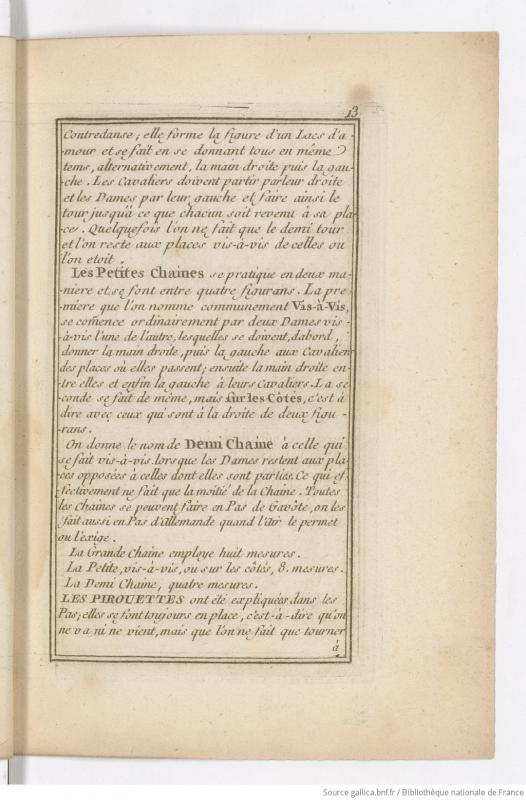 13
Contredanse; elle forme la figure d'un Lacs d'a-
-mour et se fait en se donnant tous en même
tems, alternativement, la main droite puis la gau-
-che. Les Cavaliers doivent partir par leur droite
et les Dames par leur gauche et faire ainsi le
tour jusqu'à ce que chacun soit revenu à sa pla-
-ces. Quelquefois l'on ne fait que le demi tour
et l'on reste aux places vis-à-vis de celles ou
l'on etoit.
Les Petites Chaines se pratique en deux ma-
niere et se font entre quatre figurans. La pre-
-miere que l'on nomme communement Vis-à-Vis,
se com̃ence ordinairement par deux Dames vis-
-à-vis l'une de l'autre, lesquelles se doivent, d'abord,
donner la main droite, puis la gauche aux Cavaliers
des places où elles passent; ensuite la main droite en-
-tre elles et enfin la gauche à leurs Cavaliers. La se-
conde se fait de même, mais sur les Côtés, c'est à
dire avec ceux qui sont à la droite de deux figu-
-rans.
On donne le nom de Demi Chaine à celle qui
se fait vis-à-vis. lorsque les Dames restent aux pla-
-ces opposées à celles dont elles sont parties. Ce qui ef-
-fectivement ne fait que la moitié de la Chaine. Toutes
les Chaines se peuvent faire en Pas de Gavôte, on les
fait aussi en Pas d'Allemande quand l'Air le permet
ou l'exige.
La Grande Chaine employe huit mesures.
La Petite, vis-à-vis, ou sur les côtés, 8. mesures.
La Demi Chaine, quatre mesures.
LES PIROUETTES ont été expliquées dans les
Pas; elles se font toujours en place, c'est-à-dire qu'on
ne va ni ne vient, mais que l'on ne fait que tourner
à
Source gallica.bnf.fr / Bibliothèque nationale de France